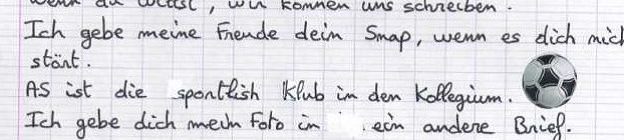 wenn du willst, wir können uns schreiben.
Ich gebe meine Freude dein Snap, wenn es dich nich
stönt.
AS ist die sportlish Klub in den Kollegium.
Ich gebe dich mein Foto in ein andere Brief.